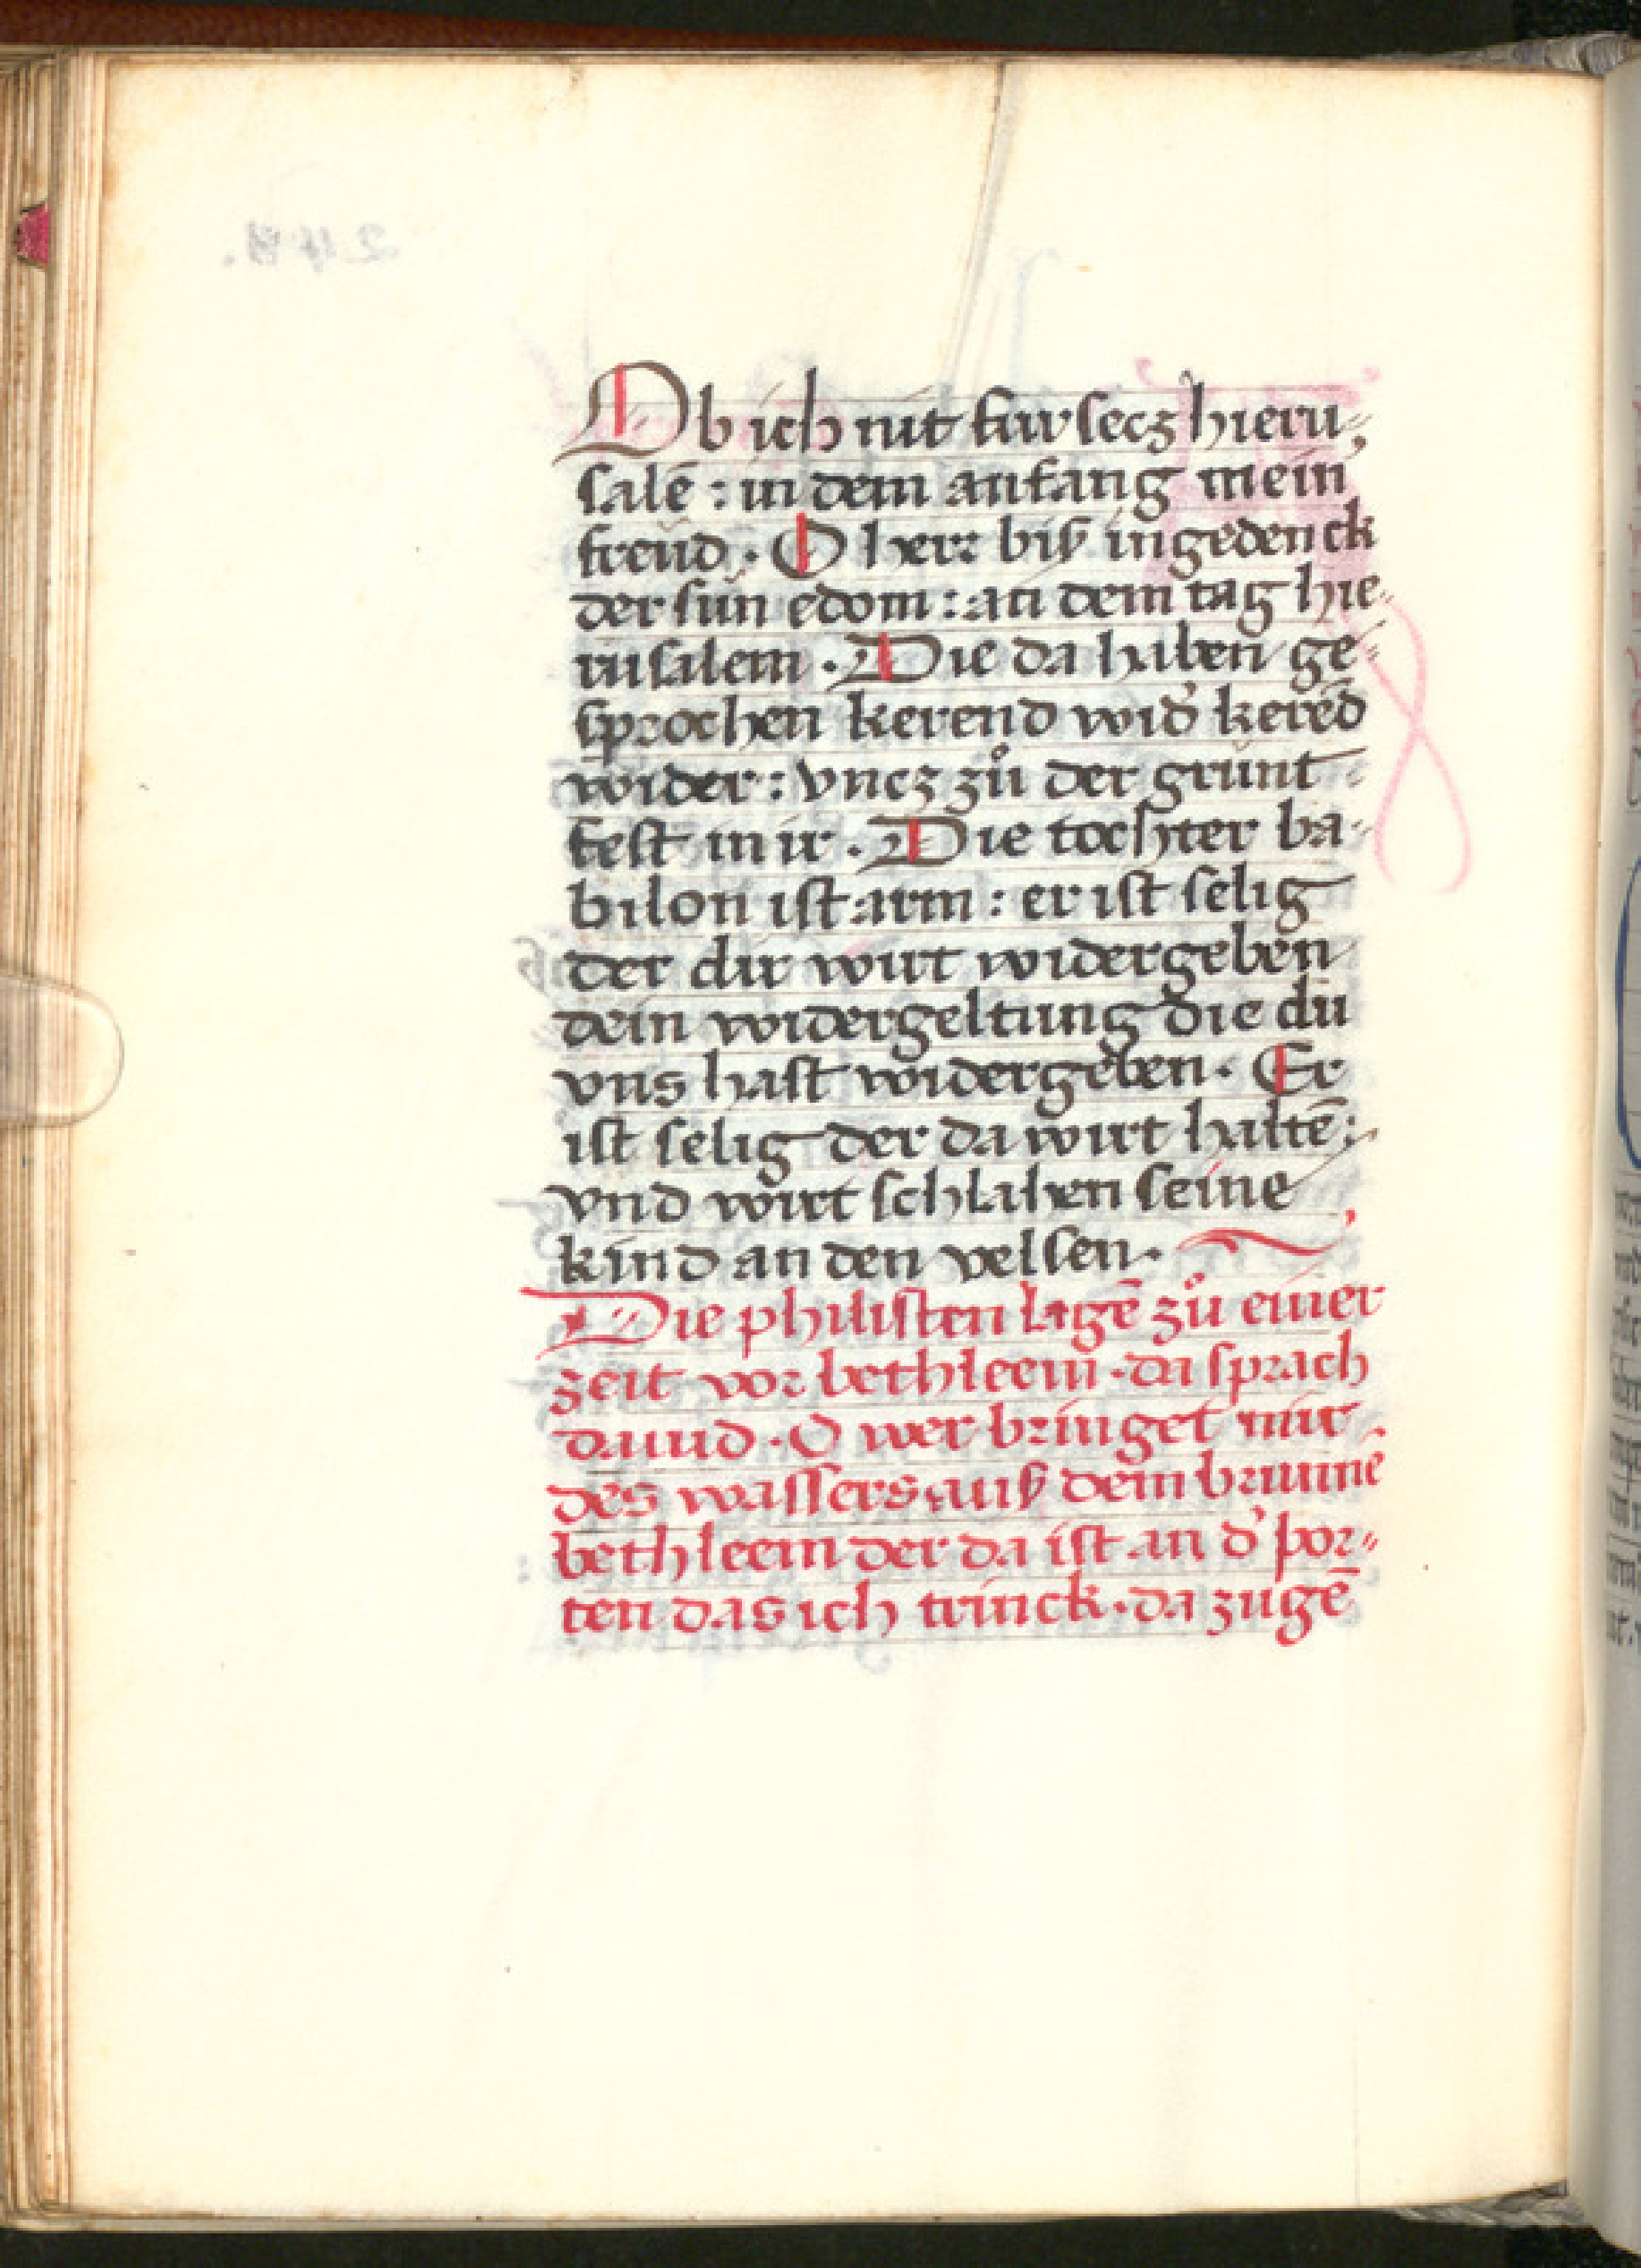 Ob ich nit fur secz hieru⸗
salē : in dem anfang mein
freüd . O herr biß ingedenck
der sün edom : an dem tag hie⸗
rusalem . Die da haben ge⸗
sprochen kerend wid' kerēd
wider : vncz zů der grunt⸗
fest in ir . Die tochter ba⸗
bilon ist arm : er ist selig
der dir wirt widergeben
dein widergeltung die du
vns hast widergeben . Er
ist selig der da wirt haltē :
vnd wirt schlahen seine
kind an den velsen .
Die philisten lagē zů einer
zeit vor bethleem . da sprach
dauid . O wer bringet mir
des wassers auß dem brunnē
bethleem der da ist an d' por⸗
ten das ich trinck . da zugē